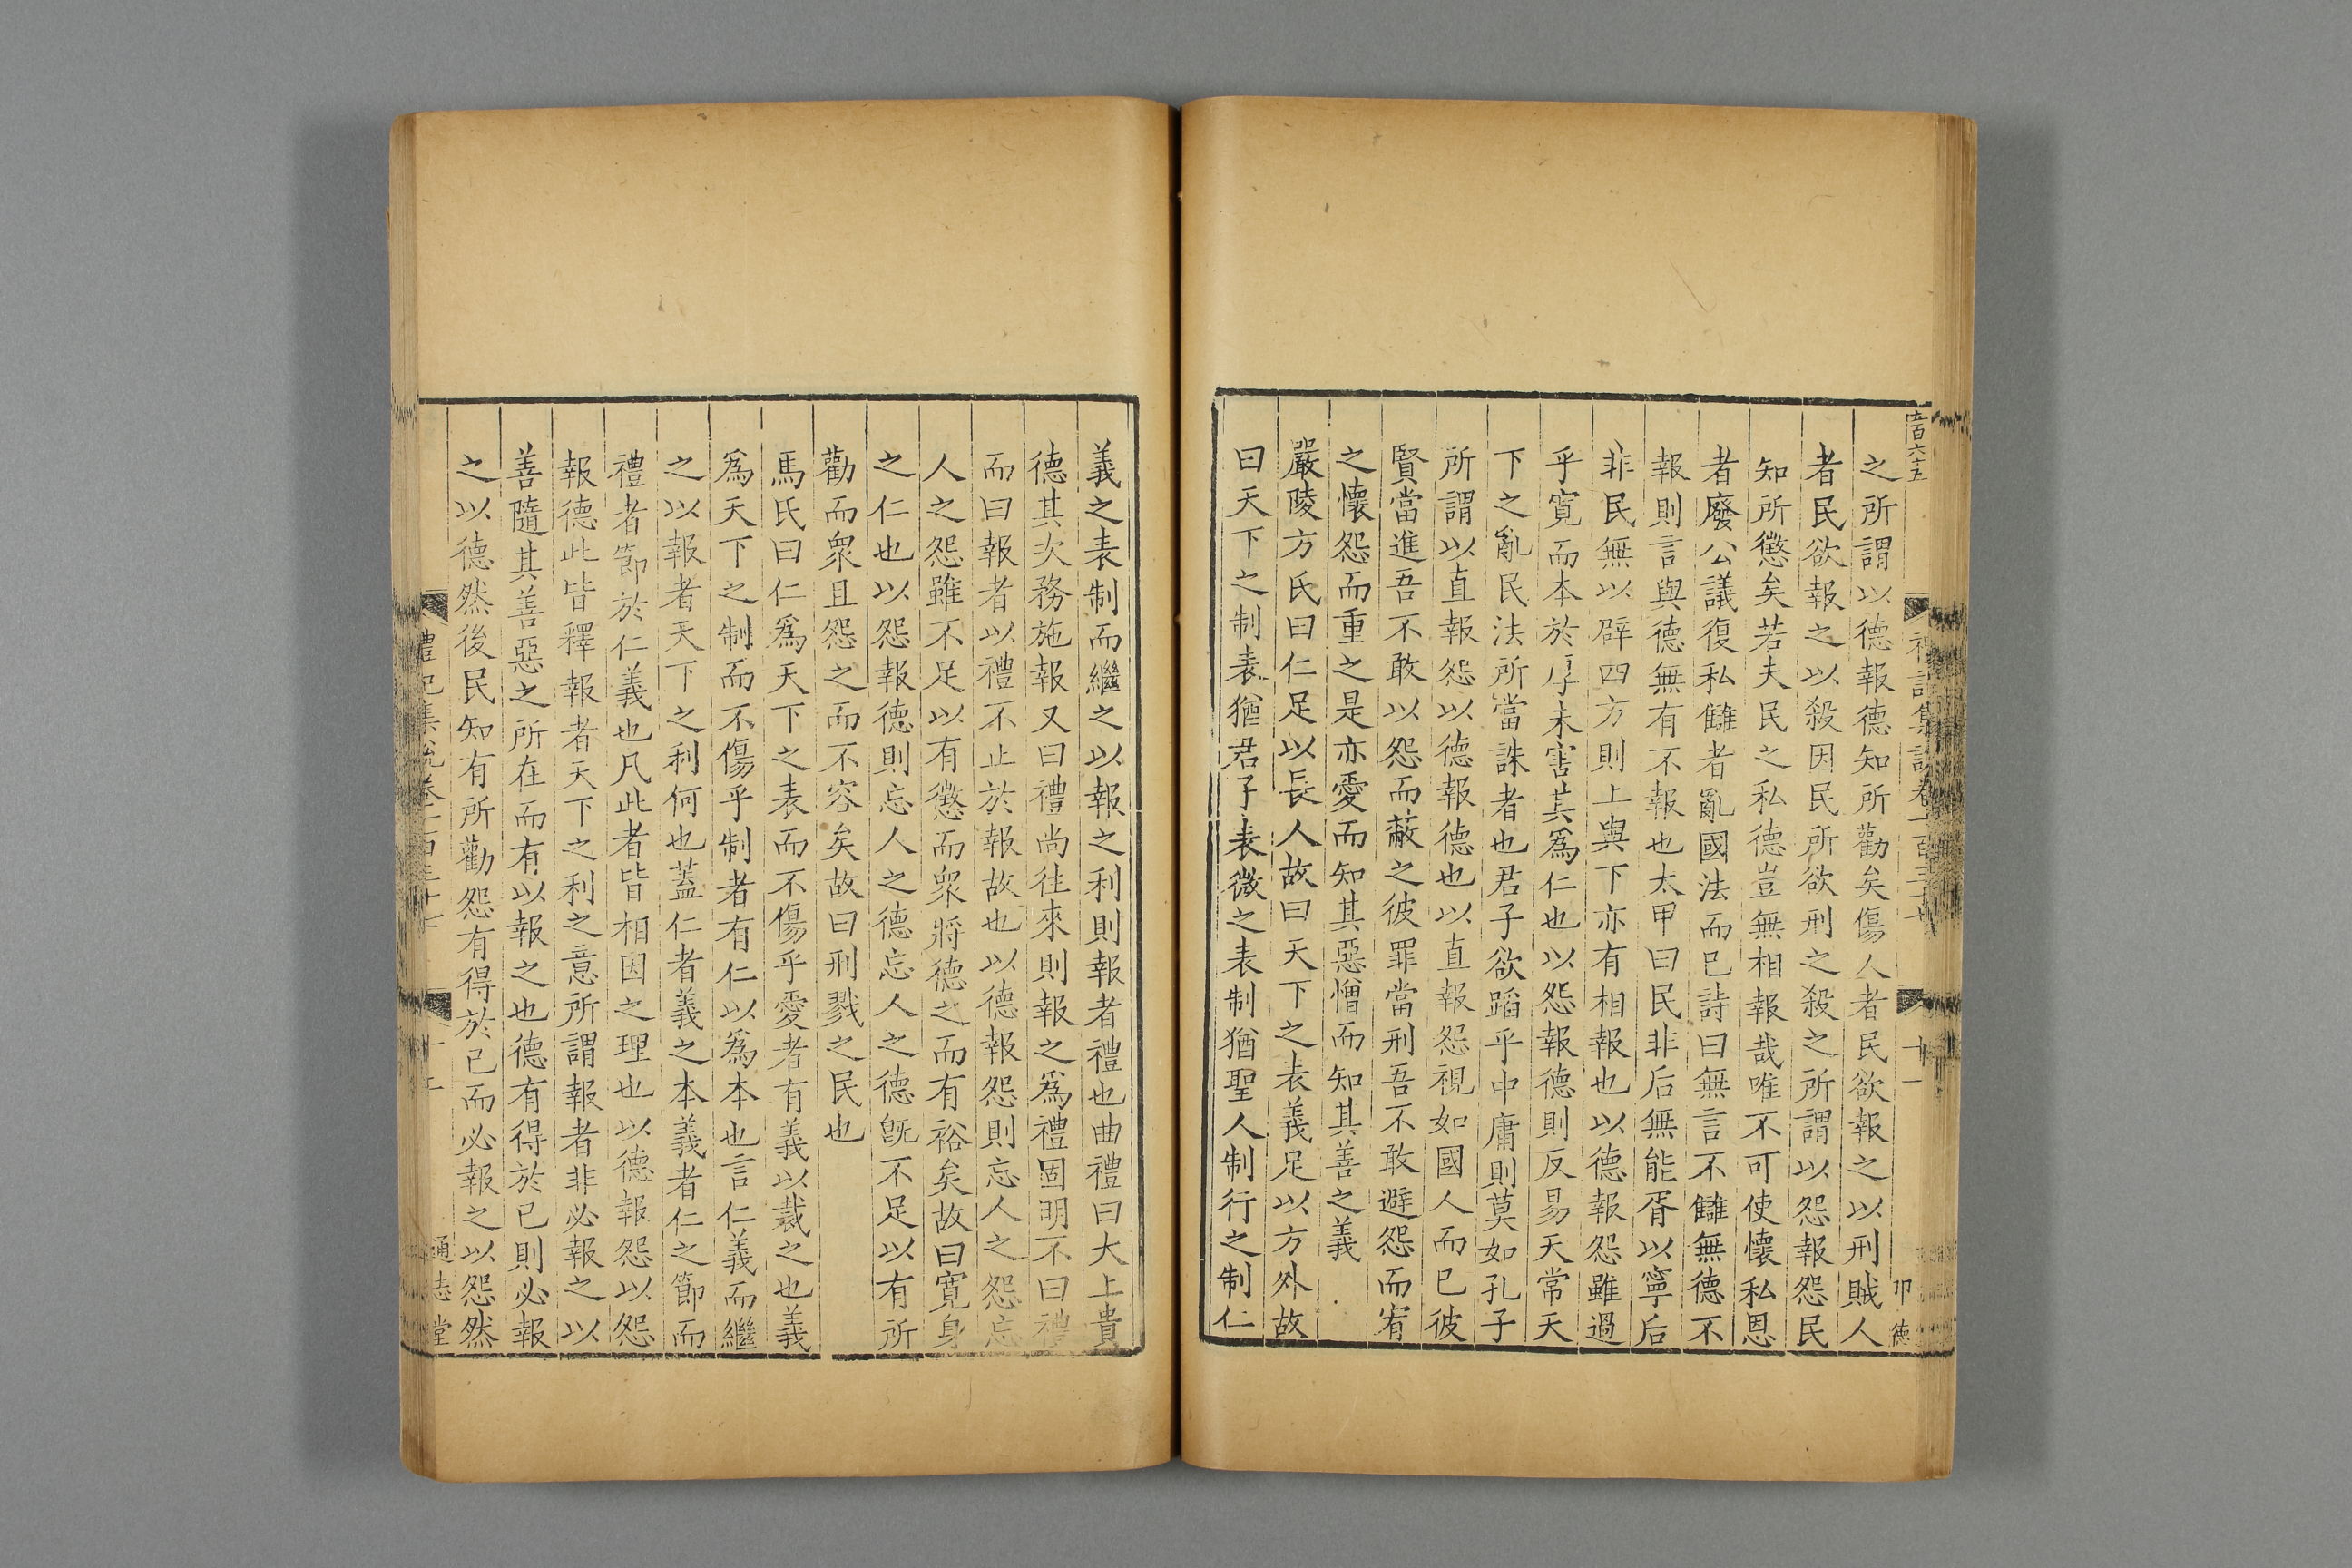 之所謂以德報德知所勸矣傷人者民欲報之以刑賊人
者民欲報之以殺因民所欲刑之殺之所謂以怨報怨民
知所懲矣若夫民之私德豈無相報哉唯不可使懷私恩
者廢公議復私讎者亂國法而已詩曰無言不讎無德不
報則言與德無有不報也太甲曰民非后無能胥以寧后
非民無以辟四方則上與下亦有相報也以德報怨雖過
乎寬而本於厚未害其為仁也以怨報德則反易天常天
下之亂民法所當誅者也君子欲蹈乎中庸則莫如孔子
所謂以直報怨以德報德也以直報怨視如國人而已彼
賢當進吾不敢以怨而蔽之彼罪當刑吾不敢避怨而宥
之懷怨而重之是亦愛而知其惡憎而知其善之義
嚴陵方氏曰仁足以長人故曰天下之表義足以方外故
曰天下之制表猶君子表微之表制猶聖人制行之制仁
義之表制而繼之以報之利則報者禮也曲禮曰大上貴
德其次務施報又曰禮尚往來則報之為禮固明不曰禮
而曰報者以禮不止於報故也以德報怨則忘人之怨忘
人之怨雖不足以有懲而眾將德之而有裕矣故曰寬身
之仁也以怨報德則忘人之德忘人之德旣不足以有所
勸而眾且怨之而不容矣故曰刑戮之民也
馬氏曰仁為天下之表而不傷乎愛者有義以裁之也義
為天下之制而不傷乎制者有仁以為本也言仁義而繼
之以報者天下之利何也蓋仁者義之本義者仁之節而
禮者節於仁義也凡此者皆相因之理也以德報怨以怨
報德此皆釋報者天下之利之意所謂報者非必報之以
善隨其善惡之所在而有以報之也德有得於已則必報
之以德然後民知有所勸怨有得於已而必報之以怨然
通志堂